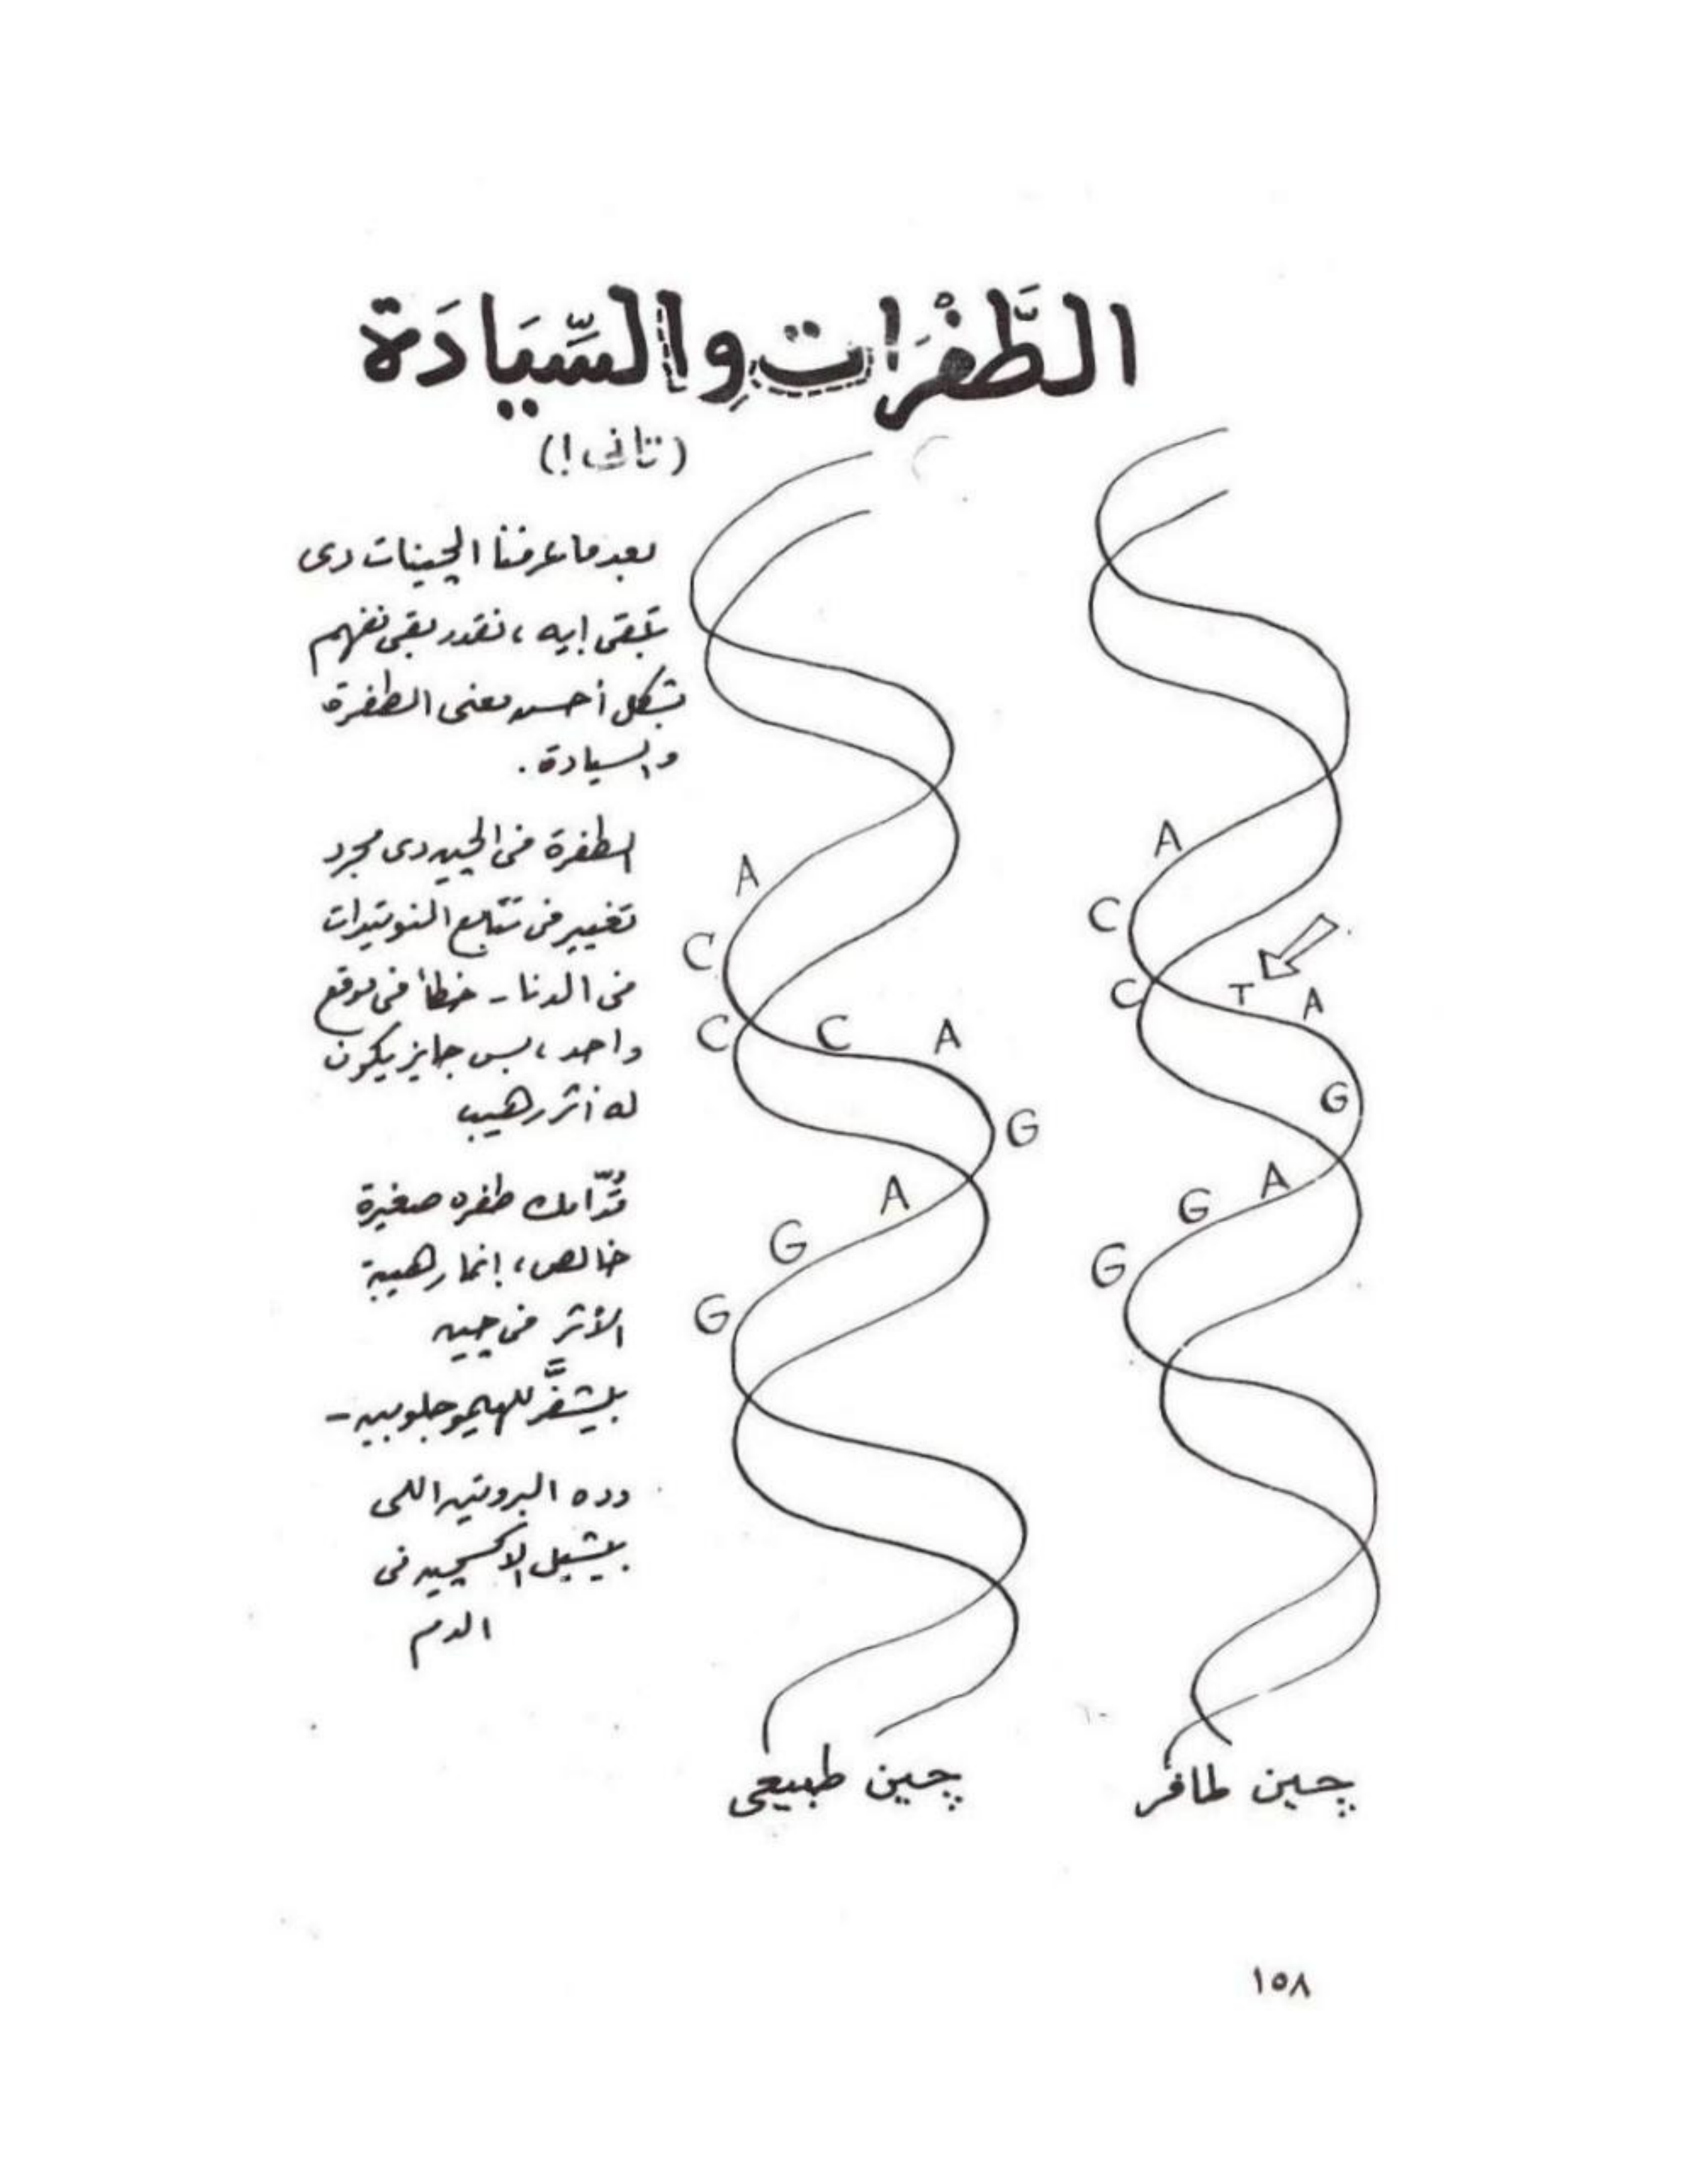 الطَّفْرَات والسِّيَادَة
(تانى!)
بعد ما عرفنا الچينات دى
تبقى إيه، نقدر بقى نفهم
بشكل أحسن معنى الطفرة
والسيادة.
الطفرة فى الچين دى مجرد
تغيير فى تتابع النوتيدات
فى الدنا - خطأ فى موقع
واحد، بس جايز يكون
له أثر رهيب
قُدَّامك طفره صغيرة
خالص، إنما رهيبة
الأثر فى چين
بيشفَّر للهيموجلوبين -
وده البروتين اللى
بيشيل الاكسچين فى
الدم
A
C
C
C
A
G
A
G
G
چين طبيعى
A
C
C
T
A
G
A
G
G
چين طافر
١٥٨